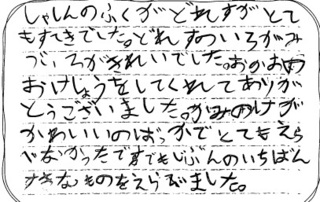 しゃしんのふくがどれすがとて
もすてきでした。どれすのいろがみ
づいろがきれいでした。おの
おけしょうをしてくれてありが
とうございました。かみのけが
かわいいのばっかでとてもえら
べなかったですでもじぶんのいちばん
すきなものをえらびました。